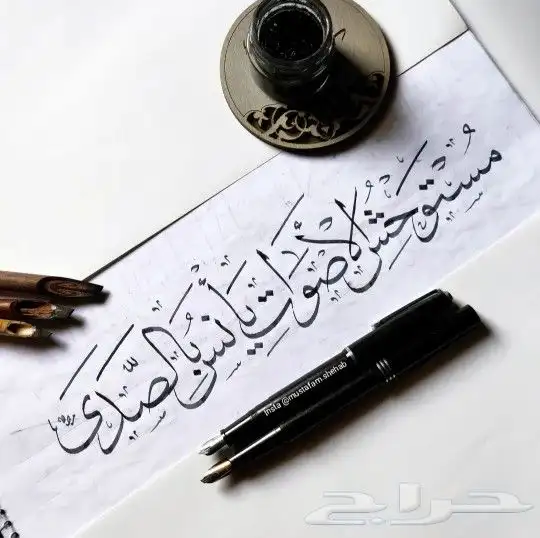 مُستوحَشُ الأصْوَاتِ يَأنَسُ بِالصَّدَى
Insta @mustafam.shehab
حراج